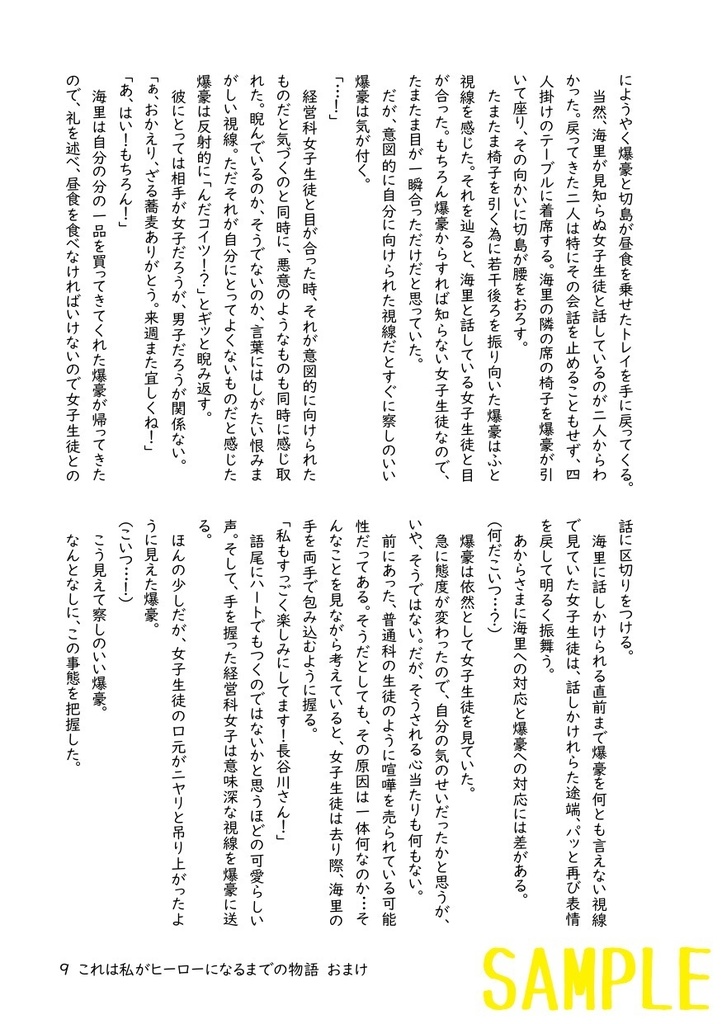 にようやく爆豪と切島が昼食を乗せたトレイを手に戻ってくる。
当然、海里が見知らぬ女子生徒と話しているのが二人からわ
かった。戻ってきた二人は特にその会話を止めることもせず、四
人掛けのテーブルに着席する。海里の隣の席の椅子を爆豪が引
いて座り、その向かいに切島が腰をおろす。
たまたま椅子を引く為に若干後ろを振り向いた爆豪はふと
視線を感じた。それを辿ると、海里と話している女子生徒と目
が合った。もちろん爆豪からすれば知らない女子生徒なので、
たまたま目が一瞬合っただけだと思っていた。
だが、意図的に自分に向けられた視線だとすぐに察しのいい
爆豪は気が付く。
「…！」
経営科女子生徒と目が合った時、それが意図的に向けられた
ものだと気づくのと同時に、悪意のようなものも同時に感じ取
れた。睨んでいるのか、そうでないのか、言葉にはしがたい恨みま
がしい視線。ただそれが自分にとってよくないものだと感じた
爆豪は反射的に「んだコイツ！？」とギッと睨み返す。
彼にとっては相手が女子だろうが、男子だろうが関係ない。
「ぁ、おかえり、ざる蕎麦ありがとう。来週また宜しくね！」
「あ、はい！もちろん！」
海里は自分の分の一品を買ってきてくれた爆豪が帰ってきた
ので、礼を述べ、昼食を食べなければいけないので女子生徒との
話に区切りをつける。
海里に話しかけられる直前まで爆豪を何とも言えない視線
で見ていた女子生徒は、話しかけれらた途端、パッと再び表情
を戻して明るく振舞う。
あからさまに海里への対応と爆豪への対応には差がある。
(何だこいつ…？)
爆豪は依然として女子生徒を見ていた。
急に態度が変わったので、自分の気のせいだったかと思うが、
いや、そうではない。だが、そうされる心当たりも何もない。
前にあった、普通科の生徒のように喧嘩を売られている可能
性だってある。そうだとしても、その原因は一体何なのか…そ
んなことを見ながら考えていると、女子生徒は去り際、海里の
手を両手で包み込むように握る。
「私もすっごく楽しみにしてます！長谷川さん！」
語尾にハートでもつくのではないかと思うほどの可愛らしい
声。そして、手を握った経営科女子は意味深な視線を爆豪に送
る。
ほんの少しだが、女子生徒の口元がニヤリと吊り上がったよ
うに見えた爆豪。
(こいつ…！)
こう見えて察しのいい爆豪。
なんとなしに、この事態を把握した。
9 これは私がヒーローになるまでの物語 おまけ
SAMPLE